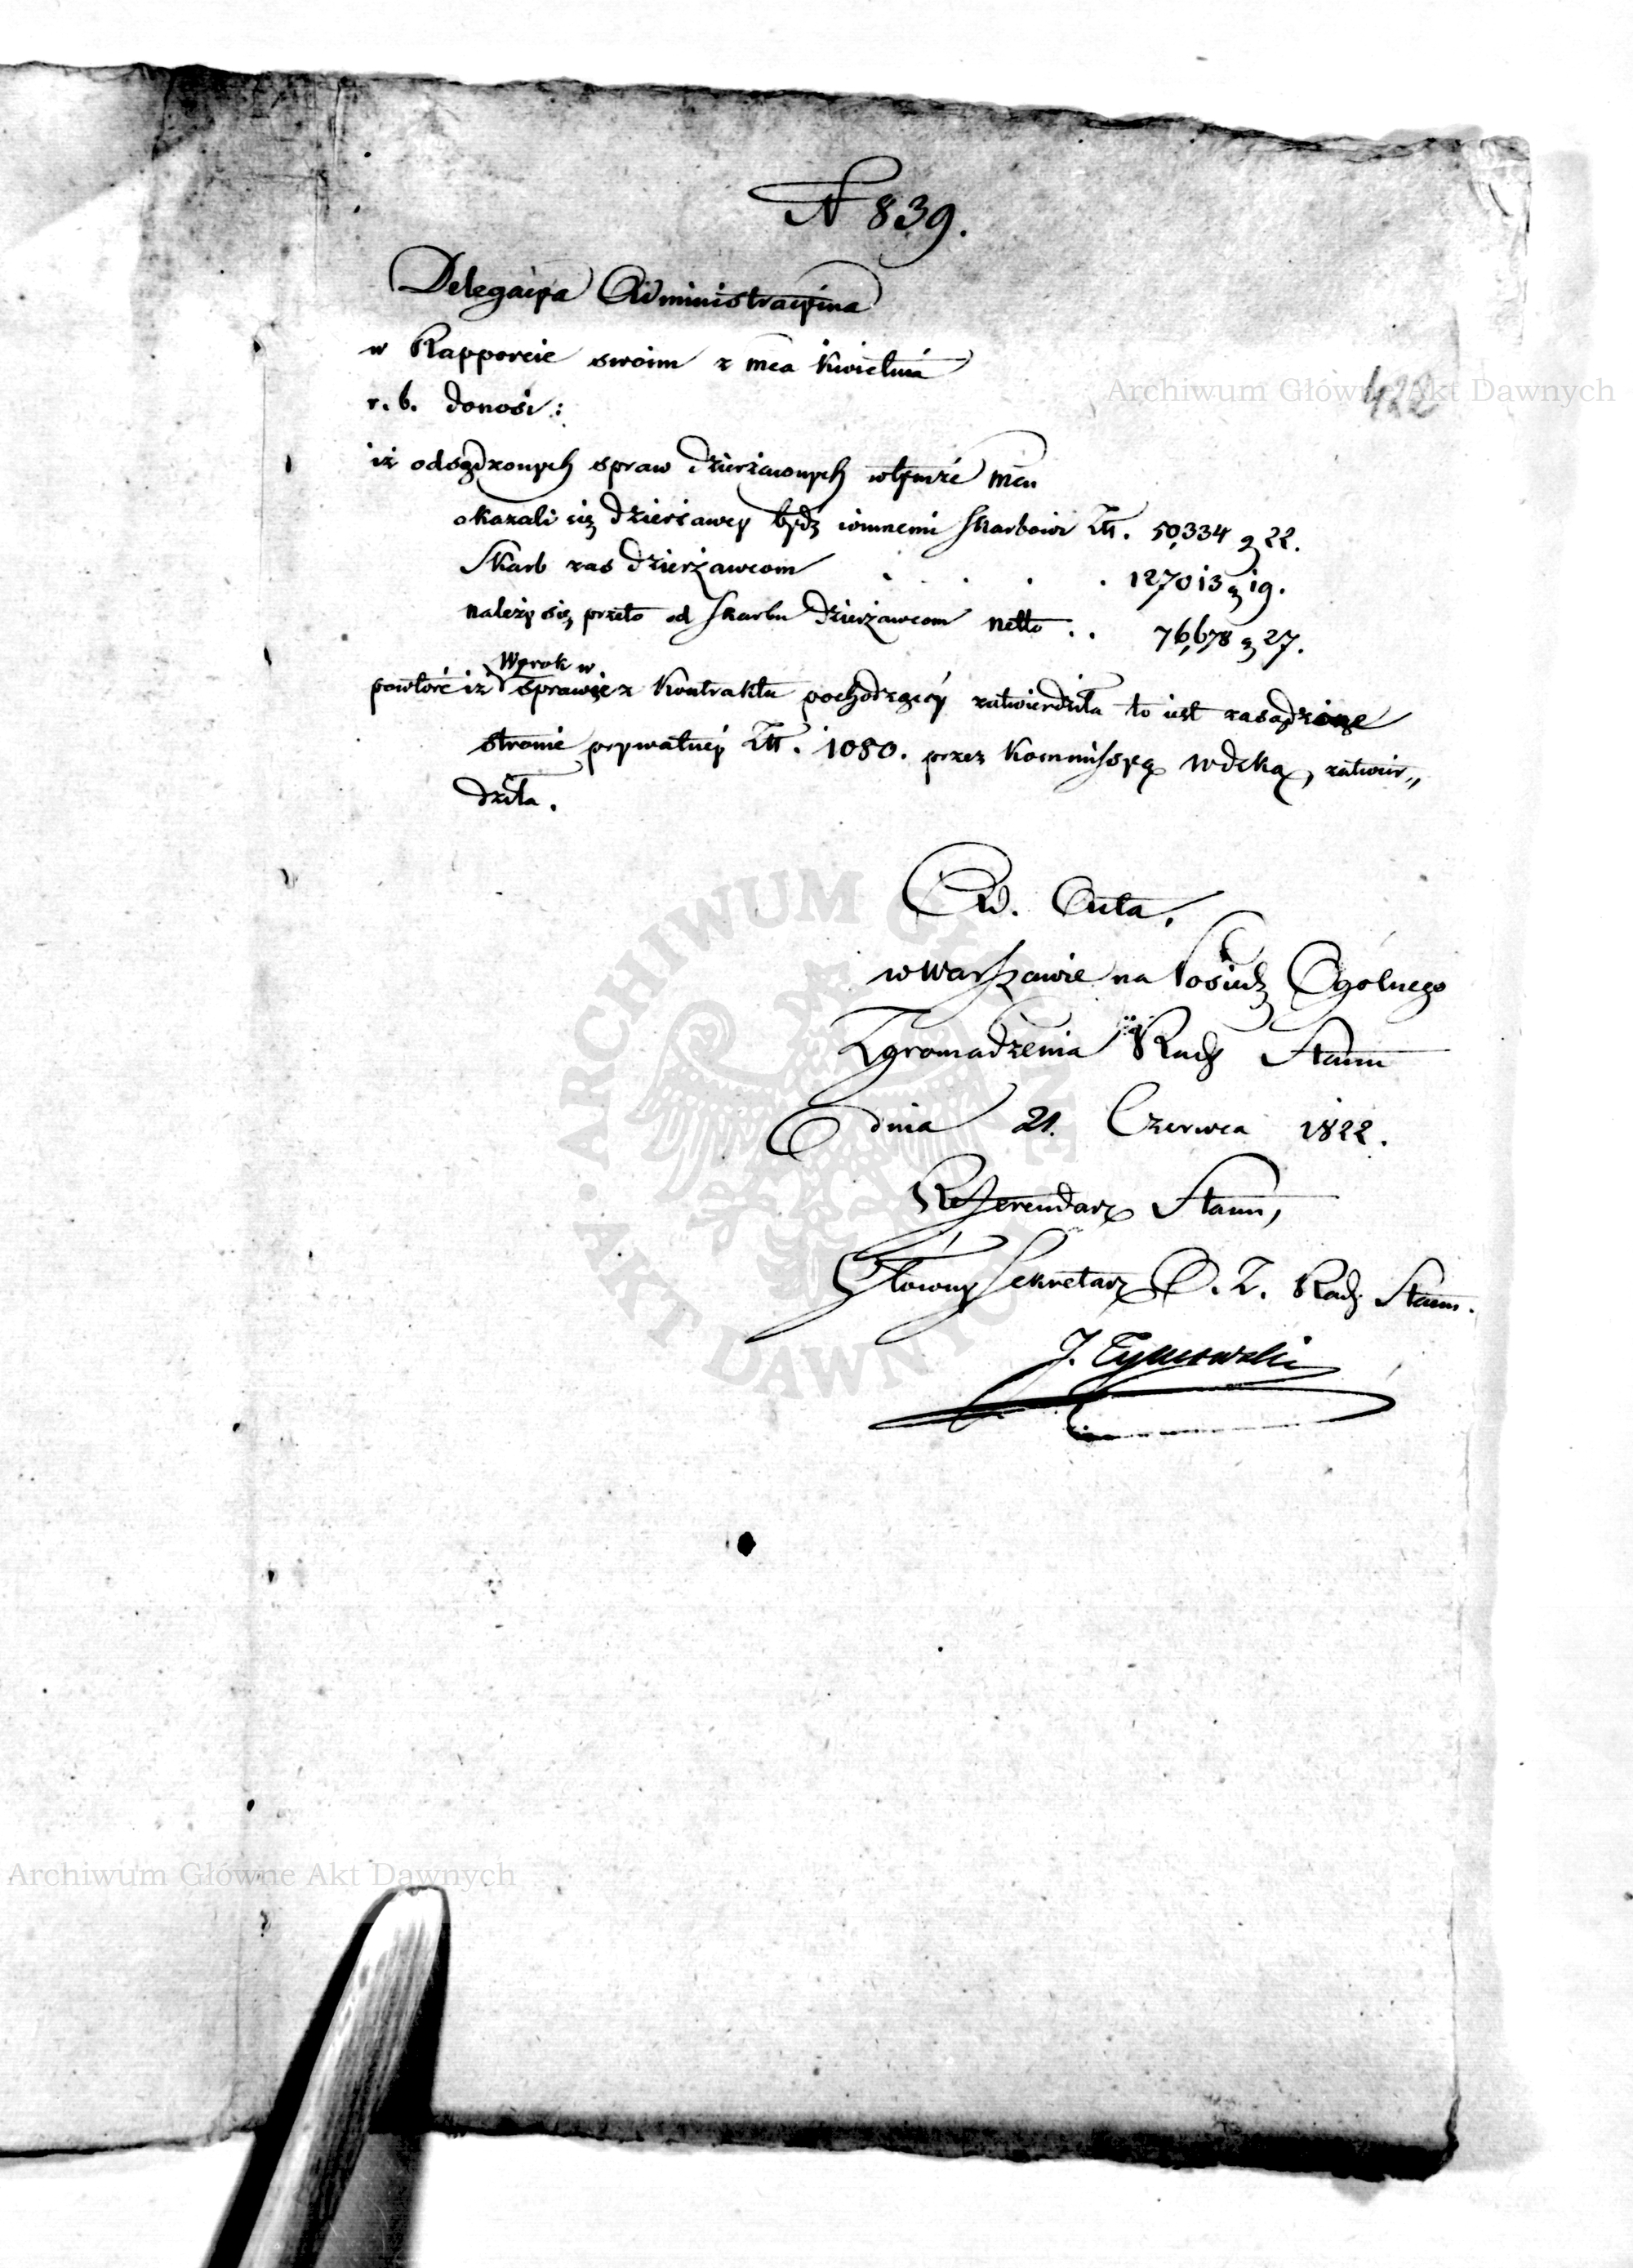 N 839.
Delegacya Administracyina
w Rapporcie swoim z mca Kwietnia
422
r. b. donosi:
iż odsądzonych spraw dzierżawnych wtymże mcu
okazali się dzierżawcy bydź winnemi Skarbowi Złł. 50,334 g 22.
Skarb zas dzierżawcom . . . . 127013 g 19.
należy się przeto od Skarbu dzierżawcom netto . . 76,678 g 27.
Wyrok w
powtóre iż sprawie z Kontraktu pochodzący zatwierdziła to iest zasądzone
stronie prywatney Złł. 1080. przez Kommissyą Wdzką, zatwier„
dziła.
Ad Acta.
w Warszawie na Posiedz Ogólnego
Zgromadzenia Rady Stanu
dnia 21. Czerwca 1822.
Referendarz Stanu,
Główny Sekretarz O. Z. Rady Stanu.
J. Tymowski
Archiwum Główne Akt Dawnych
Archiwum Główne Akt Dawnych
ARCHIWUM GŁÓWNE
AKT DAWNYCH